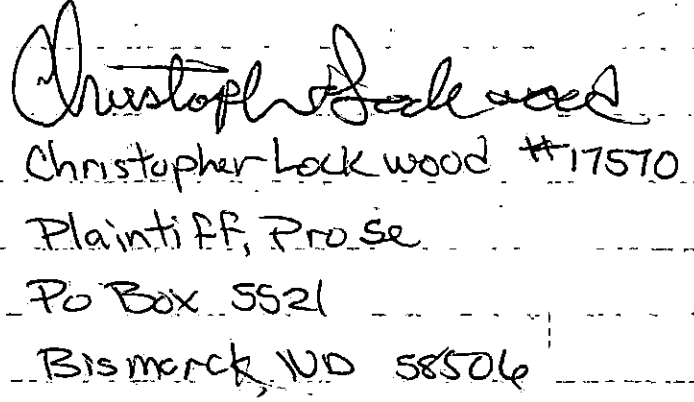 Christopher Lockwood
Christopher Lockwood #17570
Plaintiff, Pro se
PO Box 5521
Bismarck, ND 58506